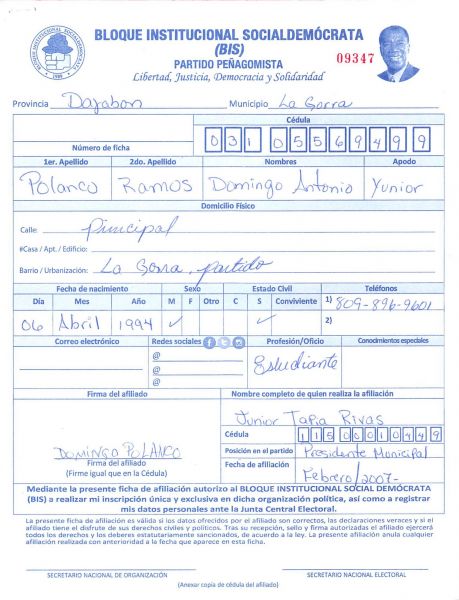 BLOQUE INSTITUCIONAL SOCIALDEMÓCRATA
(BIS)
PARTIDO PEÑAGOMISTA
Libertad, Justicia, Democracia y Solidaridad
09347
BLOQUE INSTITUCIONAL SOCIALDEMOCRATA
Provincia Dajabon Municipio La Gorra
Cédula
Número de ficha 031 0556949 9
1er. Apellido 2do. Apellido Nombres Apodo
Polanco Ramos Domingo Antonio Yunior
Domicilio Físico
Calle: Principal
#Casa / Apt. / Edificio:
Barrio / Urbanización: La Gorra, partido
Fecha de nacimiento Sexo Estado Civil Teléfonos
Día Mes Año M F Otro C S Conviviente 1) 809-896-9601
06 Abril 1994 ✓ ✓ 2)
Correo electrónico Redes sociales Profesión/Oficio Conocimientos especiales
@
@
@
Estudiante
Firma del afiliado Nombre completo de quien realiza la afiliación
Junior Tapia Rivas
Cédula
115 0001044 9
DOMINGO POLANCO
Posición en el partido Presidente Municipal
Firma del afiliado
(Firme igual que en la Cédula)
Fecha de afiliación Febrero/2007-
Mediante la presente ficha de afiliación autorizo al BLOQUE INSTITUCIONAL SOCIAL DEMÓCRATA
(BIS) a realizar mi inscripción única y exclusiva en dicha organización política, así como a registrar
mis datos personales ante la Junta Central Electoral.
La presente ficha de afiliación es válida si los datos ofrecidos por el afiliado son correctos, las declaraciones veraces y si el
afiliado tiene el disfrute de sus derechos civiles y políticos. Tras su recepción, sello y firma autorizados el afiliado ejercerá
todos los derechos y los deberes estatutariamente sancionados, de acuerdo a la ley. La presente afiliación anula cualquier
afiliación realizada con anterioridad a la fecha que aparece en esta ficha.
SECRETARIO NACIONAL DE ORGANIZACIÓN SECRETARIO NACIONAL ELECTORAL
(Anexar copia de cédula del afiliado)